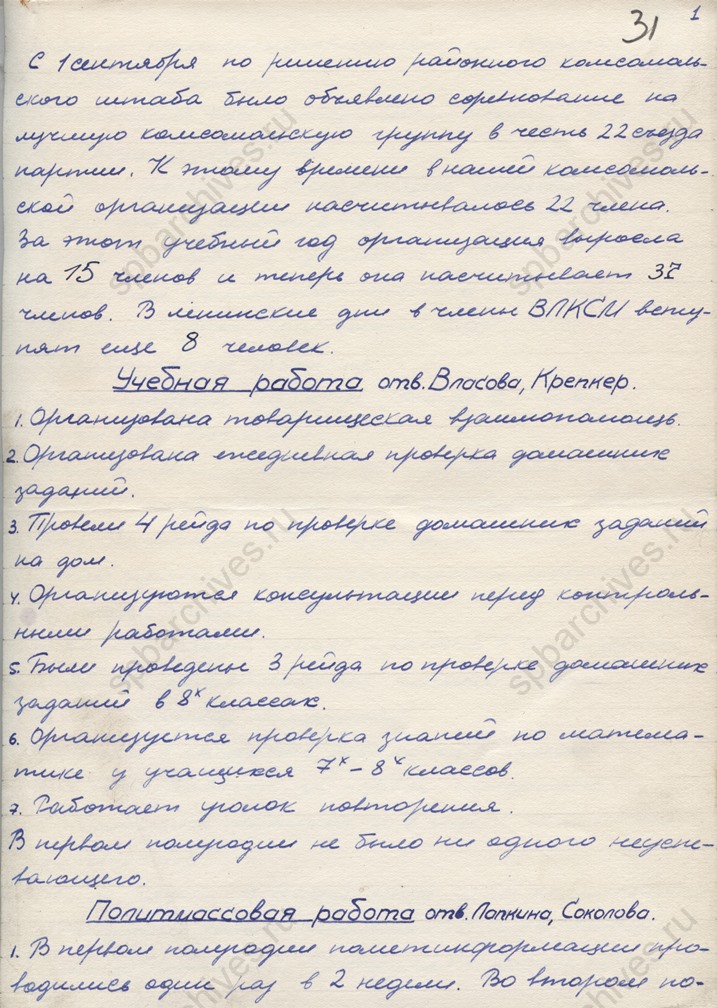 31
1
С 1 сентября по решению районного комсомоль-
ского штаба было объявлено соревнование на
лучшую комсомольскую группу в честь 22 съезда
партии. К этому времени в нашей комсомоль-
ской организации насчитывалось 22 члена.
За этот учебный год организация выросла
на 15 членов и теперь она насчитывает 37
членов. В ленинские дни в члены ВЛКСМ всту-
пят еще 8 человек.
Учебная работа отв. Власова, Крепкер.
1. Организована товарищеская взаимопомощь.
2. Организована ежедневная проверка домашних
заданий.
3. Провели 4 рейда по проверке домашних заданий
на дом.
4. Организуются консультации перед контроль-
ными работами.
5. Были проведены 3 рейда по проверке домашних
заданий в 8х классах.
6. Организуется проверка знаний по матема-
тике у учащихся 7х – 8х классов.
7. Работает уголок повторения.
В первом полугодии не было ни одного неуспе-
вающего.
Политмассовая работа отв. Лапкина, Соколова.
1. В первом полугодии политинформации про-
водились один раз в 2 недели. Во втором по-
spbarchives.ru
spbarchives.ru
spbarchives.ru
spbarchives.ru
spbarchives.ru
spbarchives.ru